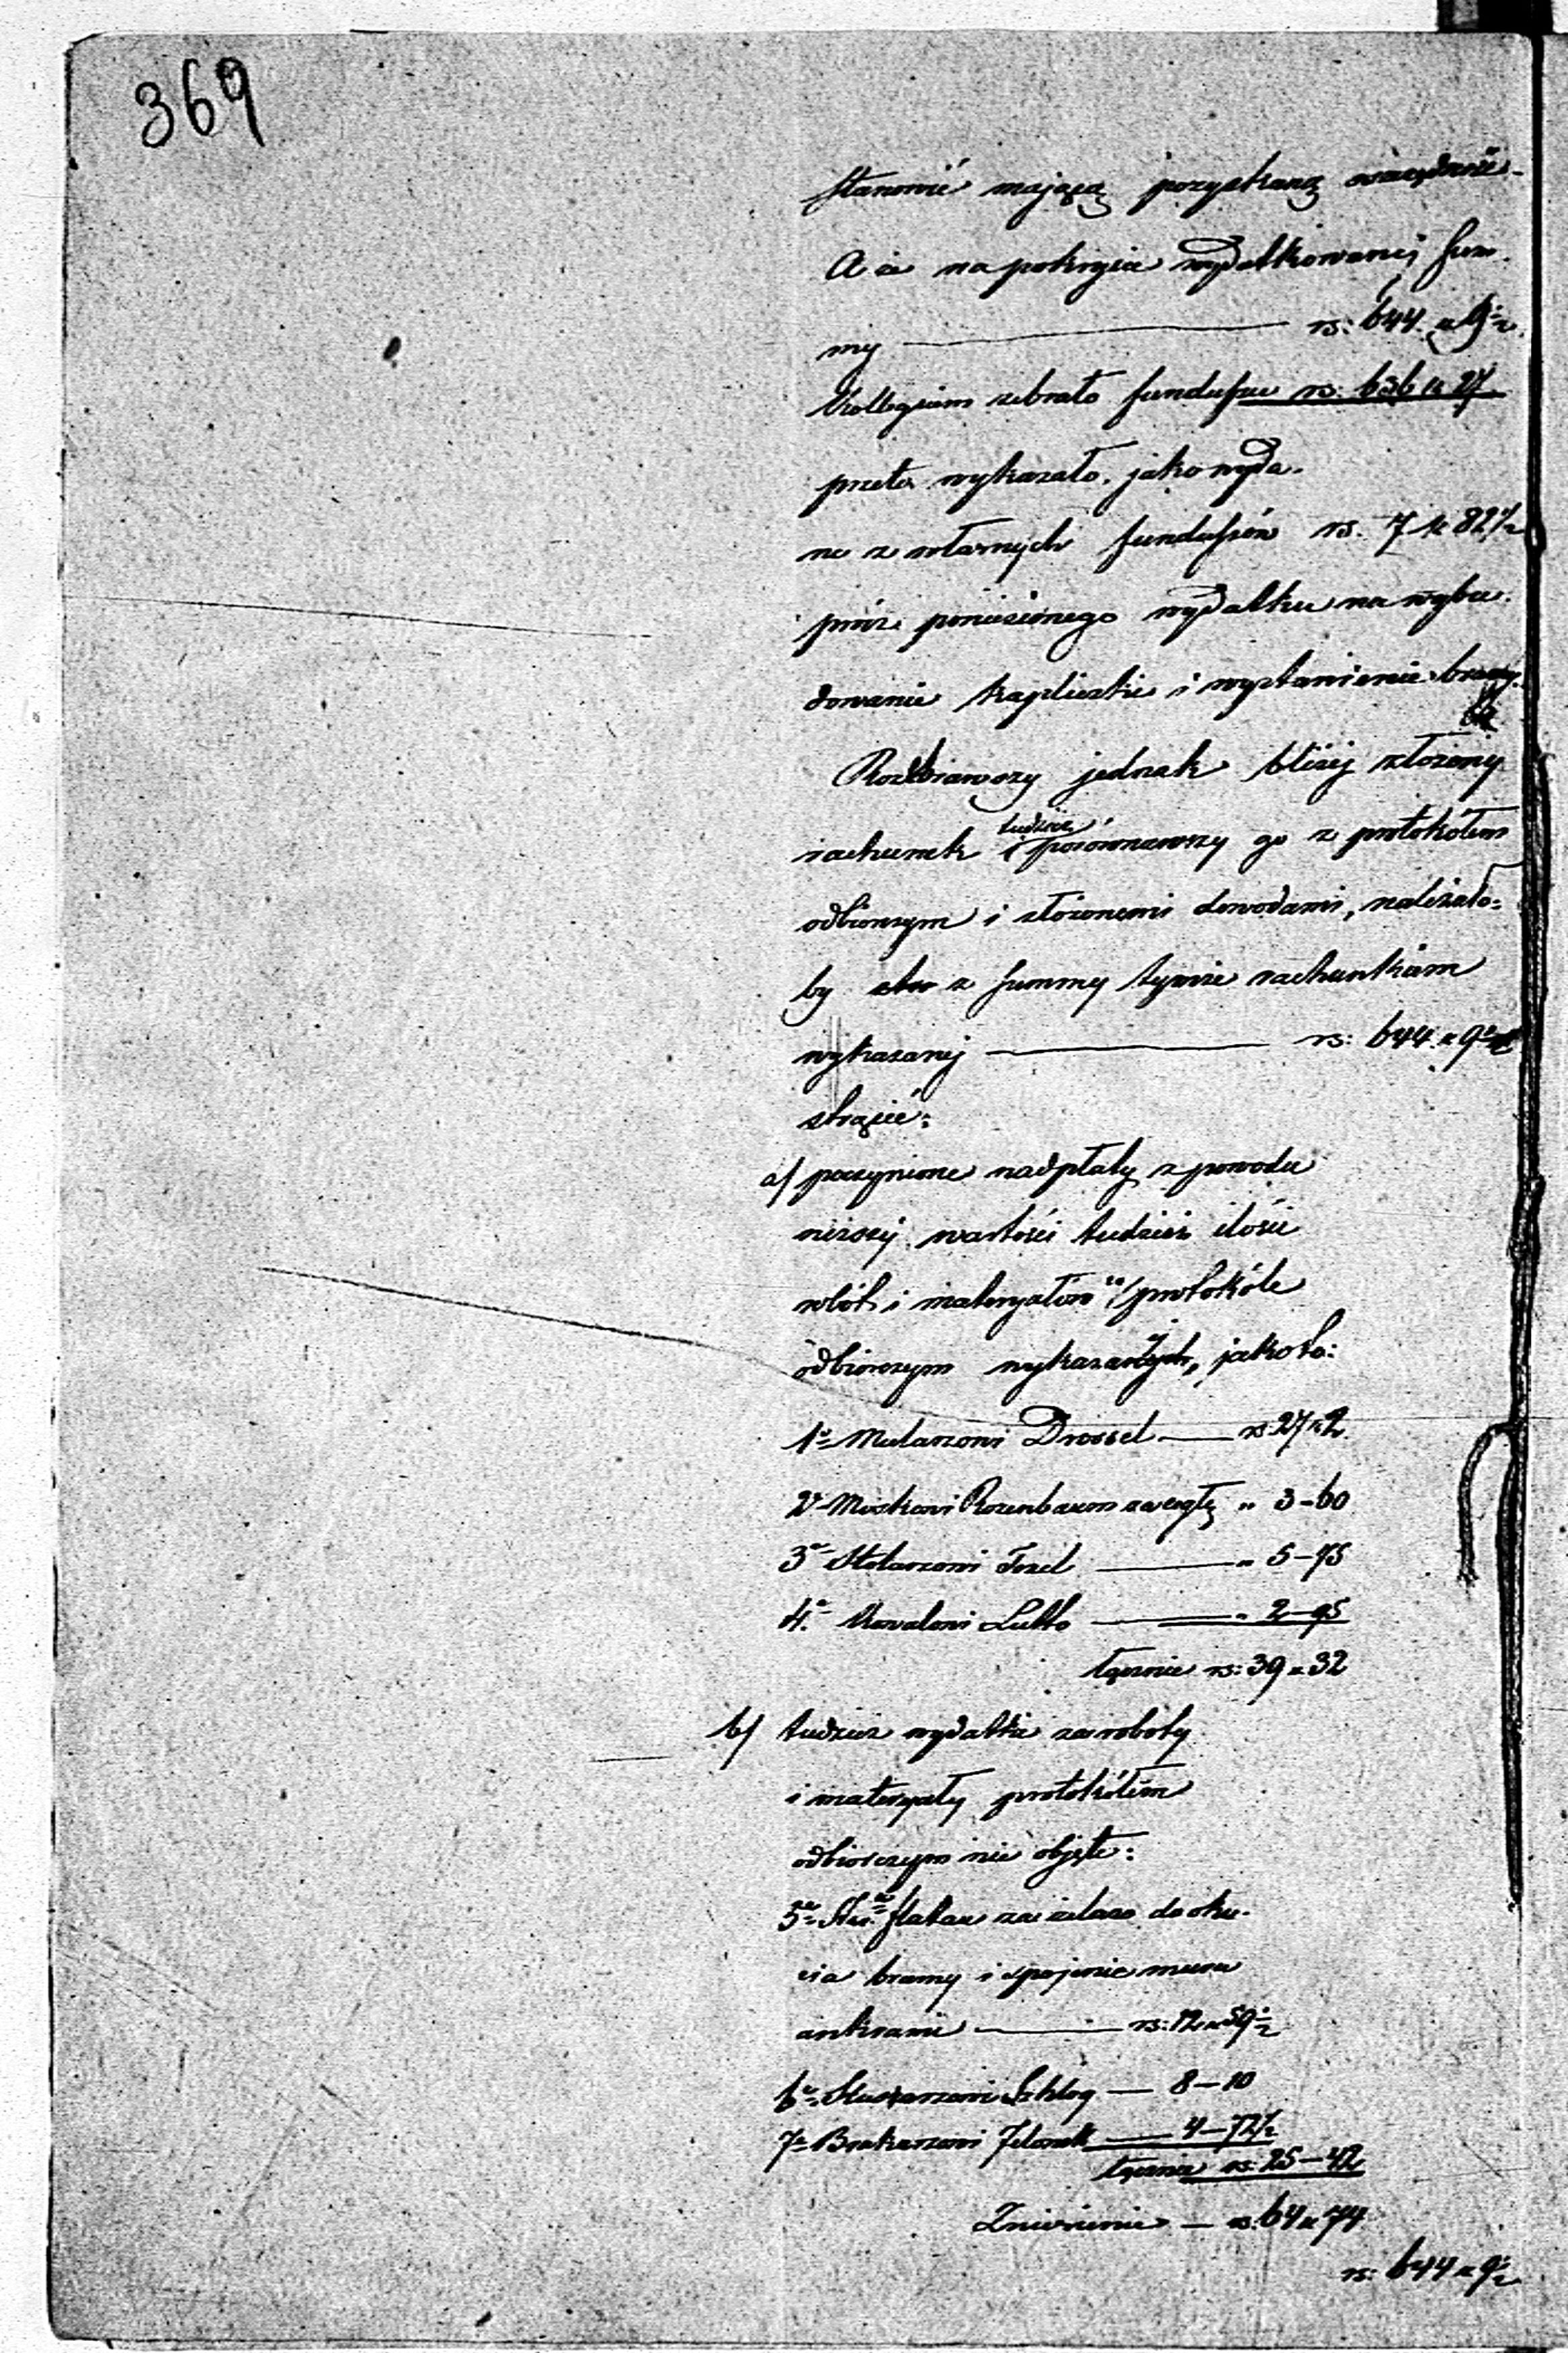 369
stanowić mającą pozyskaną oszczędność.
A że na pokrycie wydatkowanej sum-
my ——— rs: 644 k 9½
Kollegium zebrało fundusze rs: 636 k 27
przeto wykazało, jako wyda-
ne z własnych funduszów rs. 7 k 82½
prócz poniesionego wydatku na wybu-
dowanie kapliczki i wystawienie bramy.
Rozebrawszy jednak bliżej złożony
tudzież
rachunek i porównawszy go z protokółem
odbiorczym i złożonemi dowodami, należało-
by z summy tymże rachunkiem
wykazanej ——— rs: 644 k 9½
strącić:
a/ poczynione nadpłaty z powodu
niższej wartości tudzież ilości
robót i materyałów w protokóle
odbiorczym wykazanych, jakoto:
1o Mularzowi Drossel — rs 27 k 2
2o Moskowi Rozenbaum za cegłę " 3-60
3o Stolarzowi Fozel ——— " 5-75
4o Kowalowi Lutto ——— " 2-95
łącznie rs: 39 k 32
b/ tudzież wydatki za roboty
i materyały protokółem
odbiorczym nie objęte:
5o Flatau za żelazo do oku-
cia bramy i spojenie muru
ankrami ——— rs: 12 k 59½
6o Ślusarzowi Szkłog — 8-10
7o Brukarzowi Jelonek — 4-72½
łącznie rs: 25-42
Zniesienie — rs. 64 k 74
rs: 644 k 9½